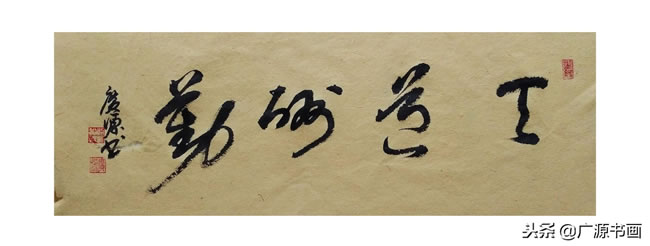 天道酬勤
廣源书
头条@广源书画